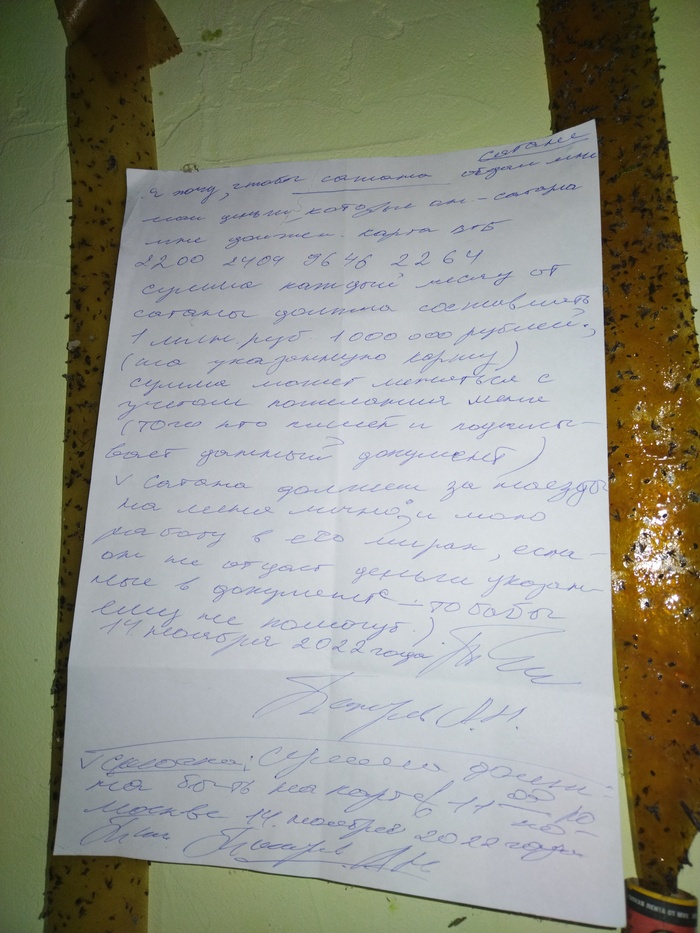 Сатане
Я хочу, чтобы сатана отдал мне
мои деньги, которые он - сатана
мне должен. карта ВТБ
2200 2404 9646 2264
сумма каждый месяц от
сатаны должна составлять
1 млн руб 1000 000 рублей,
(на указанную карту)
сумма может меняться с
учетом пожелания меня
(того кто пишет и подписы-
вает данный документ)
V Сатана должен за наезды
на меня лично, и мою
работу в его мирах, если -
он не отдаст деньги указан-
ные в документе - то бабы
ему не помогут.)
14 ноября 2022 года
А.Н.
V сумма долж-
на быть на карте 11 00 по
Москве 14 ноября 2022 года
А.Н.